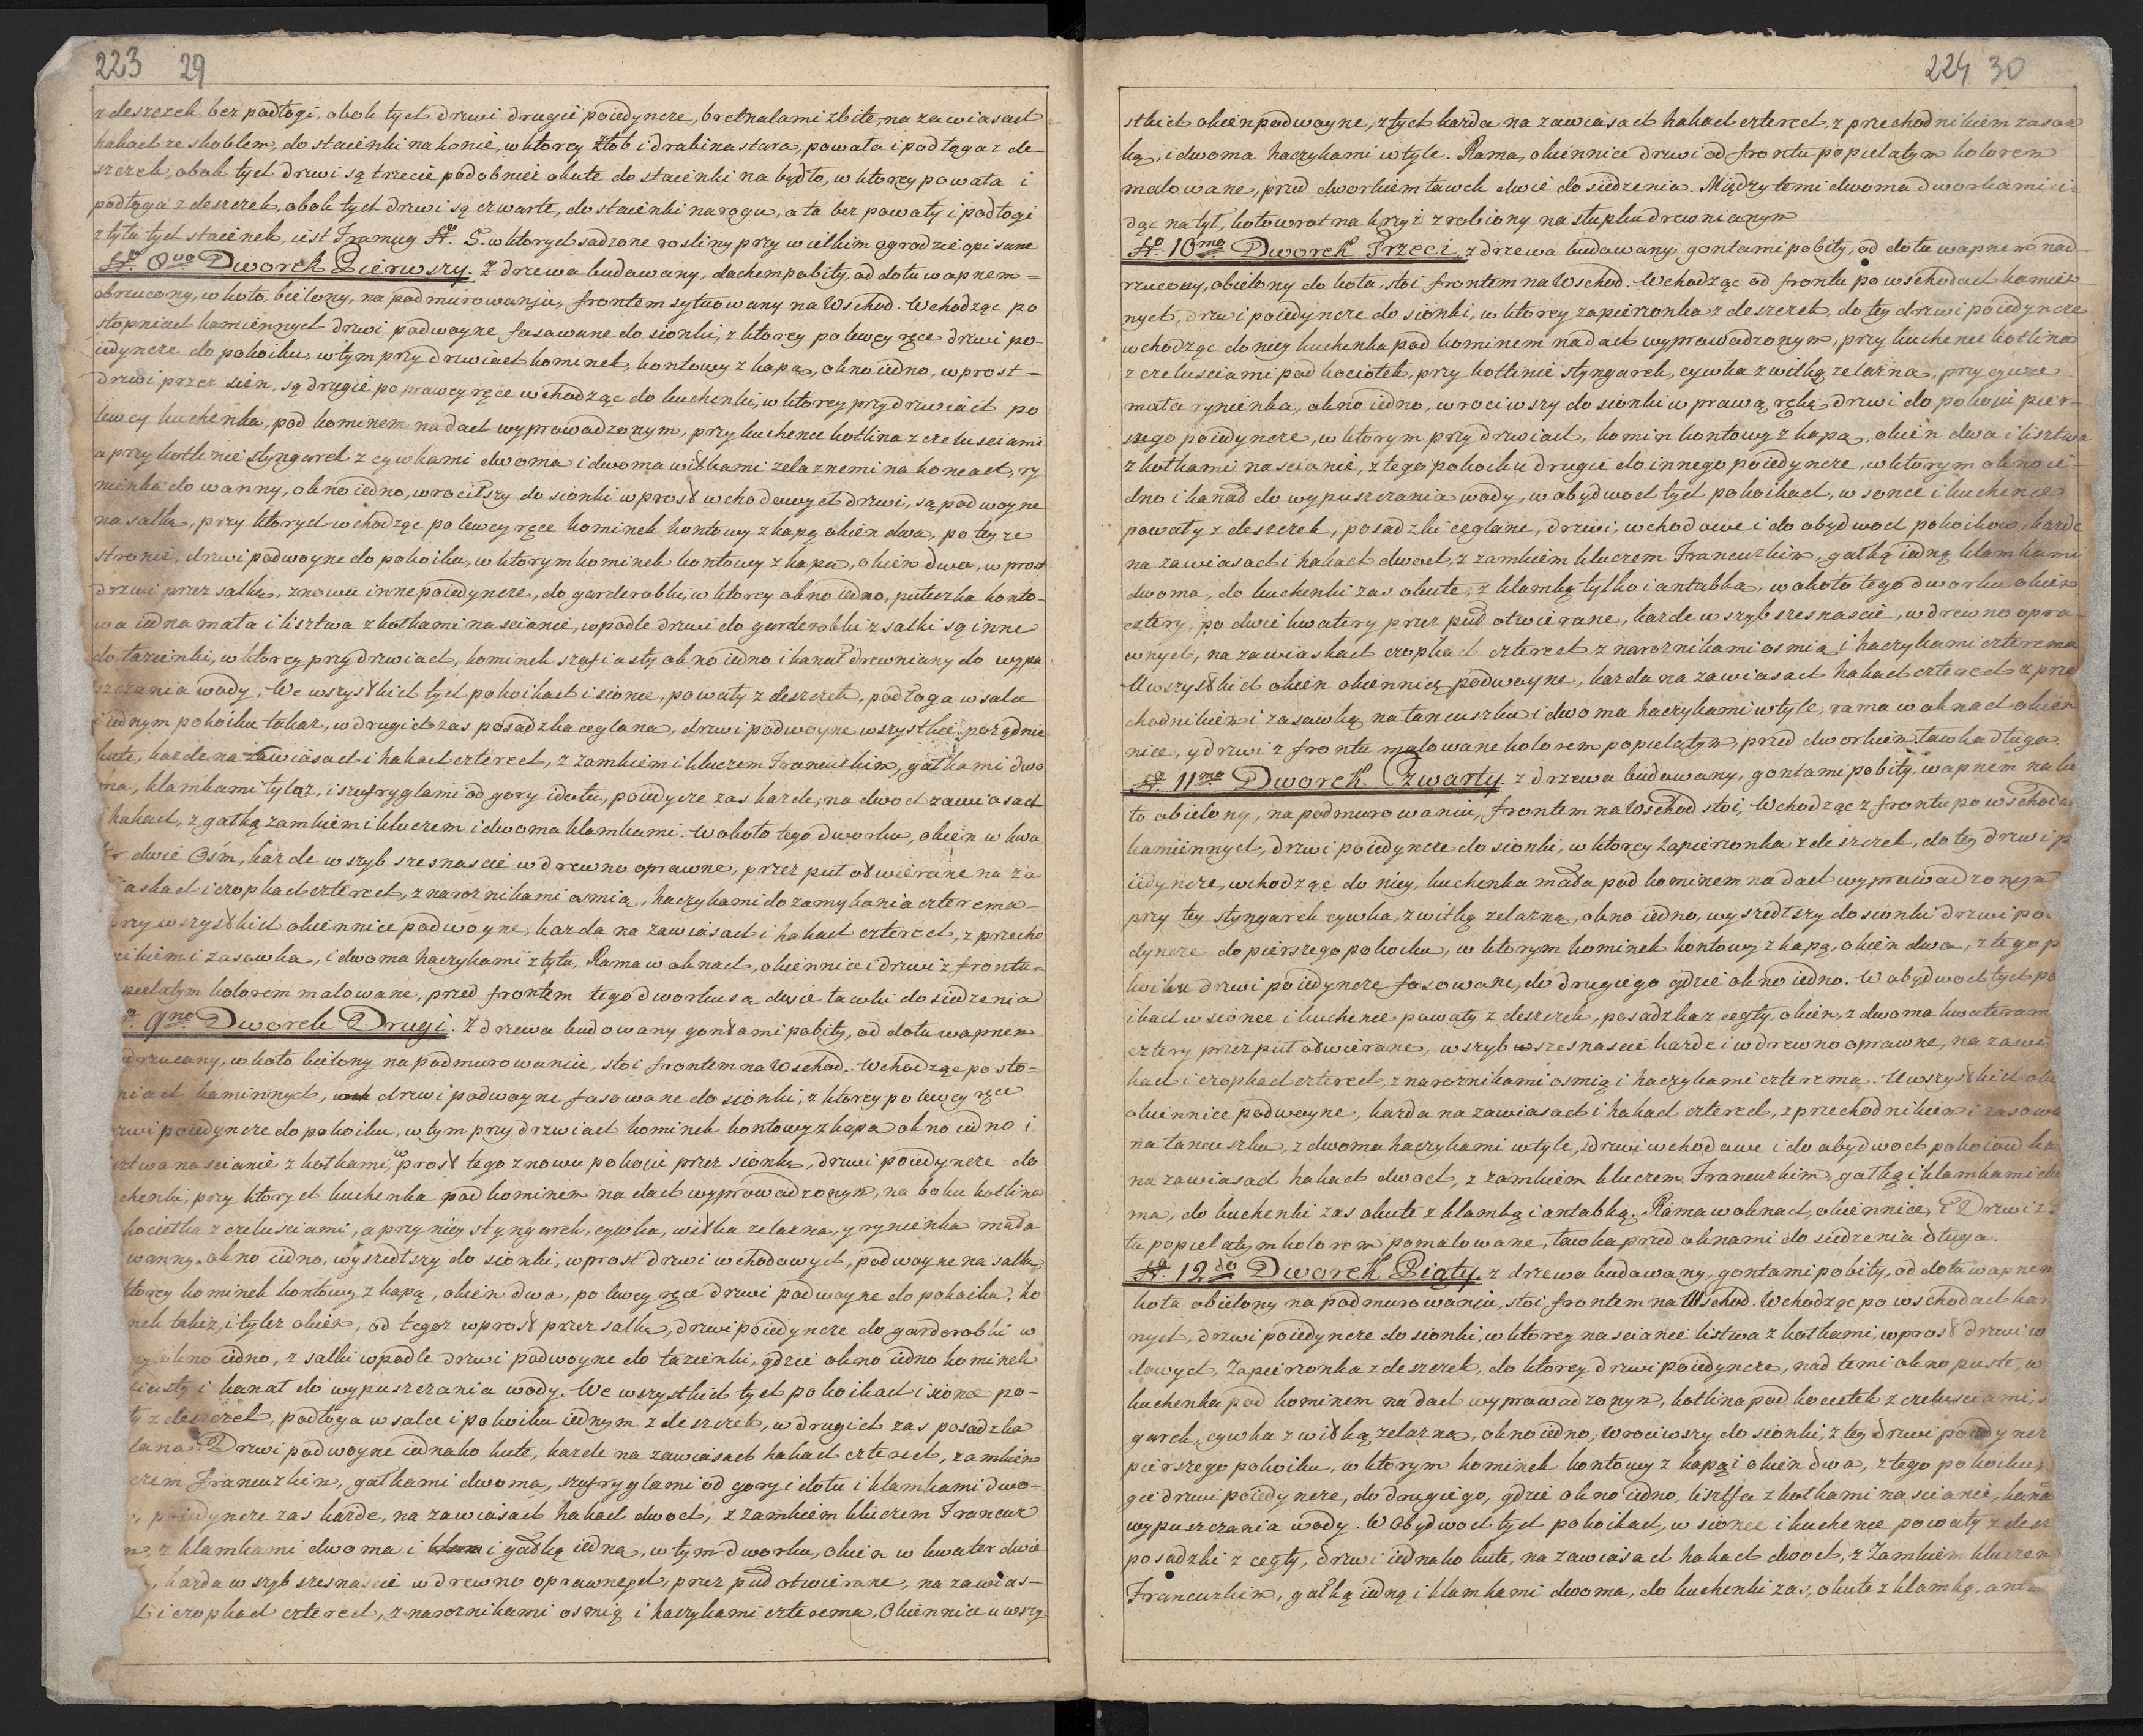 223 29
z deszczek bez podłogi, obok tych drzwi drugie poiedyncze, bretnalami zbite, na zawiasach
hakach ze skoblem, do staienki na konie, w ktorey żłob i drabina stara, powała i podłoga z de-
szczek, obok tych drzwi są trzecie podobnież okute do staienki na bydło, w ktorey powała i
podłoga z deszczek, obok tych drzwi są czwarte, do staienki na rogu, a ta bez powały i podłogi
z tyłu tych staienek, iest Framug No. 5. w ktorych sadzone rosliny przy wielkim ogrodzie opisane
No. 8vo Dworek Pierwszy. Z drzewa budowany, dachem pobity, od dołu wapnem =
obrzucony, w koło bielony, na podmurowaniu, frontem sytuowany na Wschod. Wchodząc po
stopniach kamiennych drzwi podwoyne fasowane do sionki, z ktorey po lewey ręce drzwi po-
iedyncze do pokoiku, w tym przy drzwiach kominek kontowy z kapą, okno iedno, w prost =
drzwi przez sien, są drugie po prawey ręce wchodząc do kuchenki, w ktorey przy drzwiach po
lewey kuchenka, pod kominem na dach wyprowadzonym, przy kuchence kotlina z czeluściami
a przy kotlinie styngarek z cywkami dwoma i dwoma wilkami zelaznemi na koncach, ry
nienka do wanny, okno iedno, wrociłszy do sionki w prost wchodowych drzwi, są podwoyne
na salkę, przy ktorych wchodząc po lewey ręce kominek kontowy z kapą okien dwa, po teyze
stronie, drzwi podwoyne do pokoiku, w ktorym kominek kontowy z kapą, okien dwa, w prost
drzwi przez salkę, znowu inne poiedyncze, do garderobki, w ktorey okno iedno, puteczka konto-
wa iedna mała i lisztwa z kołkami na scianie, w podle drzwi do garderobki z salki są inne
do łazienki, w ktorey przy drzwiach, kominek szafiasty okno iedno i kanał drewniany do wypu
szczania wody. We wszystkich tych pokoikach i sionce, powały z deszczek, podłoga w salce
i iednym pokoiku takaz, w drugich zas posadzka ceglana, drzwi podwoyne wszystkie porządnie
kute, kazde na zawiasach i hakach czterech, z zamkiem i kluczem Francuzkim, gałkami dwo
ma, klamkami tyląż, i szufryglami od gory i dołu, poiedycze zas kazde, na dwoch zawiasach
i hakach, z gałką zamkiem i kluczem i dwoma klamkami. W około tego dworku, okien w kwa
ter dwie Ośm, każde w szyb szesnascie w drewno oprawne, przez puł odwierane na za
iaskach i czopkach czterech, z naroznikami osmią, haczykami do zamykania czterema -
przy wszystkich okiennice podwoyne, kazda na zawiasach i hakach czterech, z przecho
nikiem i zasowka, i dwoma haczykami z tyłu, Rama w oknach, okiennice i drzwi z frontu =
pielatym kolorem malowane, przed frontem tego dworku są dwie ławki do siedzenia
9no Dworek Drugi. Z drzewa budowany gontami pobity, od dołu wapnem
obrzucany, w koło bielony na podmurowaniu, stoi frontem na Wschod. Wchodząc po sto=
niach kamiennych, drzwi podwoyne fasowane do sionki, z ktorey po lewey ręce
drzwi poiedyncze do pokoiku, w tym przy drzwiach kominek kontowy z kapą okno iedno i
sztwa na scianie z kołkami, w prost tego znowu pokoiu przez sionkę, drzwi poiedyncze do
chenki, przy ktorych kuchenka pod kominem na dach wyprowadzonym, na boku kotlina
kociołka z czeluściami, a przy niey styngarek, cywka, wilka zelazna, y rynienka mała
wanny, okno iedno, wyszedłszy do sionki, w prost drzwi wchodowych, podwoyne na salkę,
ktorey kominek kontowy z kapą, okien dwa, po lewey ręce drzwi podwoyne do pokoiku, ko
nek takiz, i tylez okien, od tegoz w prost przez salkę, drzwi poiedyncze do garderobki w
okno iedno, z salki w podle drzwi podwoyne do łazienki, gdzie okno iedno kominek
iasty i kanał do wypuszczania wody. We wszystkich tych pokoikach i sionce po-
ły z deszczek, podłoga w salce i pokoiku iednym z deszczek, w drugich zas posadzka
lana. Drzwi podwoyne iednako kute, kazde na zawiasach hakach czterech, zamkiem
czem Francuzkim, gałkami dwoma, szufryglami od gory i dołu i klamkami dwo-
poiedyncze zas każde, na zawiasach hakach dwoch, z zamkiem kluczem Francuz
z klamkami dwoma i i gałką iedną, w tym dworku, okien w kwater dwie
kazda w szyb szesnascie w drewno oprawnych, przez puł otwierane, na zawias-
i czopkach czterech, z naroznikami osmią i haczykami czterema, Okiennice u wszy
224 30
stkich okien podwoyne, z tych kazda na zawiasach hakach czterech, z przechodnikiem zasow
ką, i dwoma haczykami w tyle. Rama, okiennice drzwi od frontu popielatym kolorem
malowane, przed dworkiem ławek dwie do siedzenia. Między temi dwoma dworkami i=
dąc na tył, kołowrot na krzyż zrobiony na słupku drewnianym
No. 10mo Dworek Trzeci, z drzewa budowany, gontami pobity, od dołu wapnem nad-
rzucony, obielony do koła, stoi frontem na Wschod. Wchodząc od frontu po wschodach kamien
nych, drzwi poiedyncze do sionki, w ktorey zapierzonka z deszczek, do tey drzwi poiedyncze
wchodząc do niey kuchenka pod kominem na dach wyprowadzonym, przy kuchence kotlina
z czeluściami pod kociołek, przy kotlinie styngarek, cywka z wilką zelazna, przy cywce
mała rynienka, okno iedno, wrociwszy do sionki w prawą rękę drzwi do pokoiu pier-
szego poiedyncze, w ktorym przy drzwiach, komin kontowy z kapą, okien dwa i lisztwa
z kołkami na scianie, z tego pokoiku drugie do innego poiedyncze, w ktorym okno ie-
dno i kanał do wypuszczania wody, w obydwoch tych pokoikach, w sonce i kuchence
powały z deszczek, posadzki ceglane, drzwi, wchodowe i do obydwoch pokoikow, kazde
na zawiasach i hakach dwoch, z zamkiem kluczem Francuzkim, gałką iedną klamkami
dwoma, do kuchenki zas okute, z klamką tylko i antabką, w około tego dworku okien
cztery, po dwie kwatery przez puł otwierane, kazde w szyb szesnascie, w drewno opra-
wnych, na zawiaskach czopkach czterech z naroznikami osmią i haczykami czterema
U wszystkich okien okiennicę podwoyne, kazda na zawiasach hakach czterech z prze
chodnikiem i zasawką na łancuszku i dwoma haczykami w tyle, rama w oknach okien
nice, y drzwi z frontu malowane kolorem popielatym, przed dworkiem ławka długa
No. 11mo Dworek Czwarty. z drzewa budowany, gontami pobity, wapnem na ko
ło obielony, na podmurowaniu, frontem na Wschod stoi, Wchodząc z frontu po wschoda
kamiennych, drzwi poiedyncze do sionki, w ktorey zapierzonka z deszczek, do tey drzwi p
iedyncze, wchodząc do niey, kuchenka mała pod kominem na dach wyprowadzonym
przy tey styngarek cywka, z wilką zelazną, okno iedno, wyszedłszy do sionki drzwi po
dyncze do pierszego pokoiku, w ktorym kominek kontowy z kapą, okien dwa, z tego p
koiku drzwi poiedyncze fasowane, do drugiego gdzie okno iedno. W obydwoch tych po
ikach w sionce i kuchence powały z deszczek, posadzka z cegły, okien, z dwoma kwateram
cztery przez puł odwierane, w szyb szesnascie kazde i w drewno oprawne, na zawi
kach i czopkach czterech, z naroznikami osmią i haczykami czterema. U wszystkich oki
okiennice podwoyne, kazda na zawiasach i hakach czterech, z przechodnikiem i zasowk
na łancuszku, z dwoma haczykami w tyle, drzwi wchodowe i do obydwoch pokoiow ka
na zawiasach hakach dwoch, z zamkiem kluczem Francuzkim, gałką i klamkami dw
ma, do kuchenki zas okute z klamką i antabką. Rama w oknach, okiennice, i Drzwi z
tu popielatym kolorem pomalowane, ławka przed oknami do siedzenia długa.
No. 12do Dworek Piąty. z drzewa budowany, gontami pobity, od dołu wapnem
koła obielony na podmurowaniu, stoi frontem na Wschod. Wchodząc po wschodach kam
nych, drzwi poiedyncze do sionki, w ktorey na scianie listwa z kołkami, w prost drzwi w
dowych, Zapierzonka z deszczek, do ktorey drzwi poiedyncze, nad temi okno puste, w
kuchenka pod kominem na dach wyprowadzonym, kotlina pod kociełek z czeluściami, s
garek, cywka z wilką zelazna, okno iedno, Wrociwszy do sionki, z tey drzwi poiedyncz
pierszego pokoiku, w ktorym kominek kontowy z kapą i okien dwa, z tego pokoiku,
gie drzwi poiedyncze, do drugiego, gdzie okno iedno, lisztfa z kołkami na scianie, kana
wypuszczania wody. W Obydwoch tych pokoikach, w sionce i kuchence powały z desz
posadzki z cegły, drzwi iednako kute, na zawiasach hakach dwoch, z Zamkiem kluczem
Francuzkim, gałką iedną i klamkami dwoma, do kuchenki zas, okute z klamką, ant